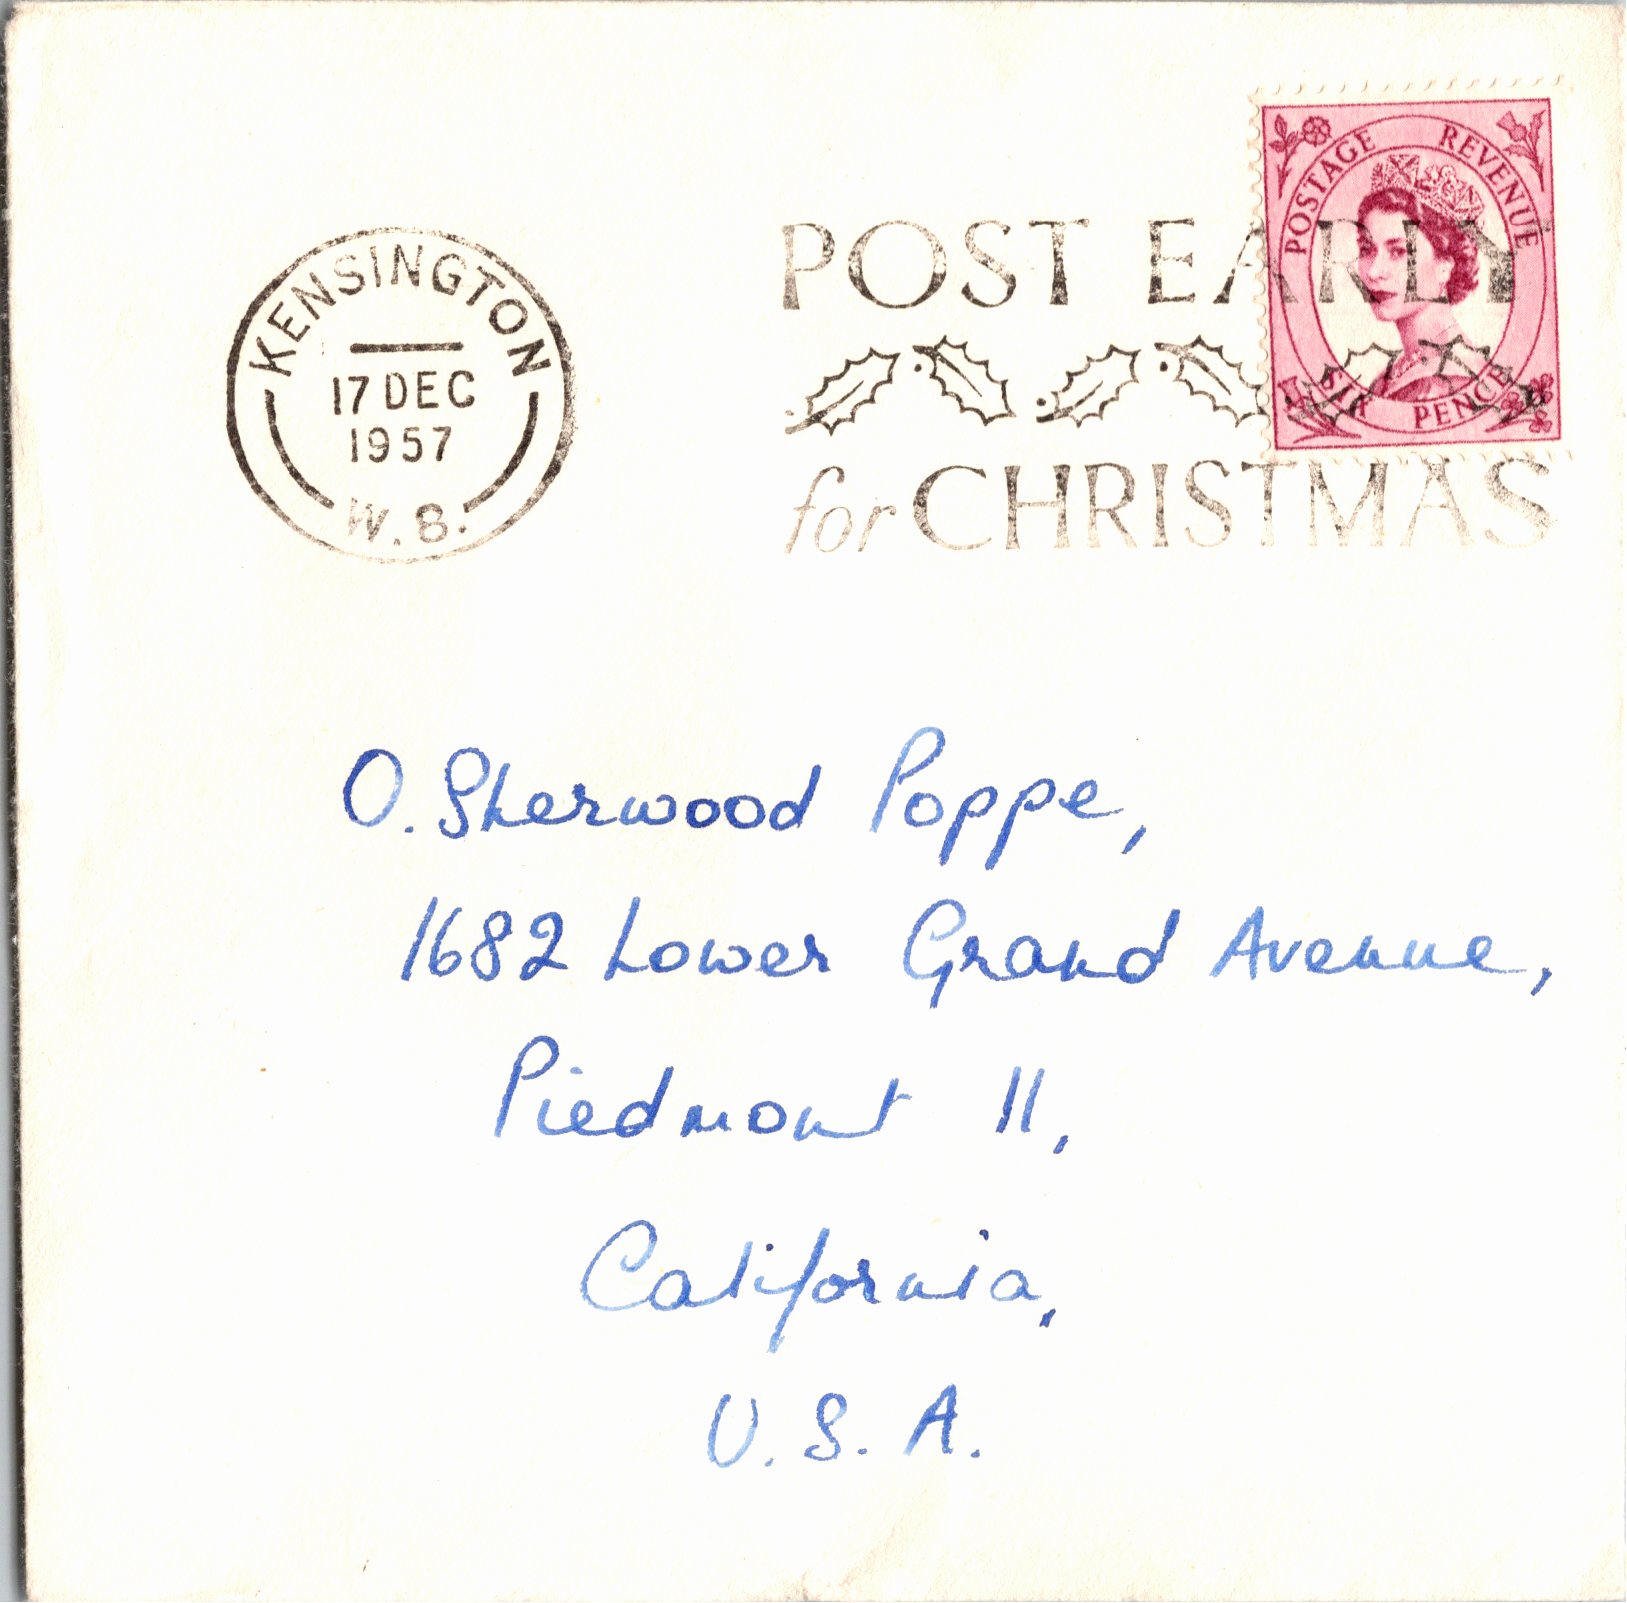 POSTAGE REVENUE
SIX PENCE
POST EARLY
for CHRISTMAS
KENSINGTON
17 DEC
1957
W.8.
O. Sherwood Poppe,
1682 Lower Grand Avenue,
Piedmont 11,
California,
U.S.A.